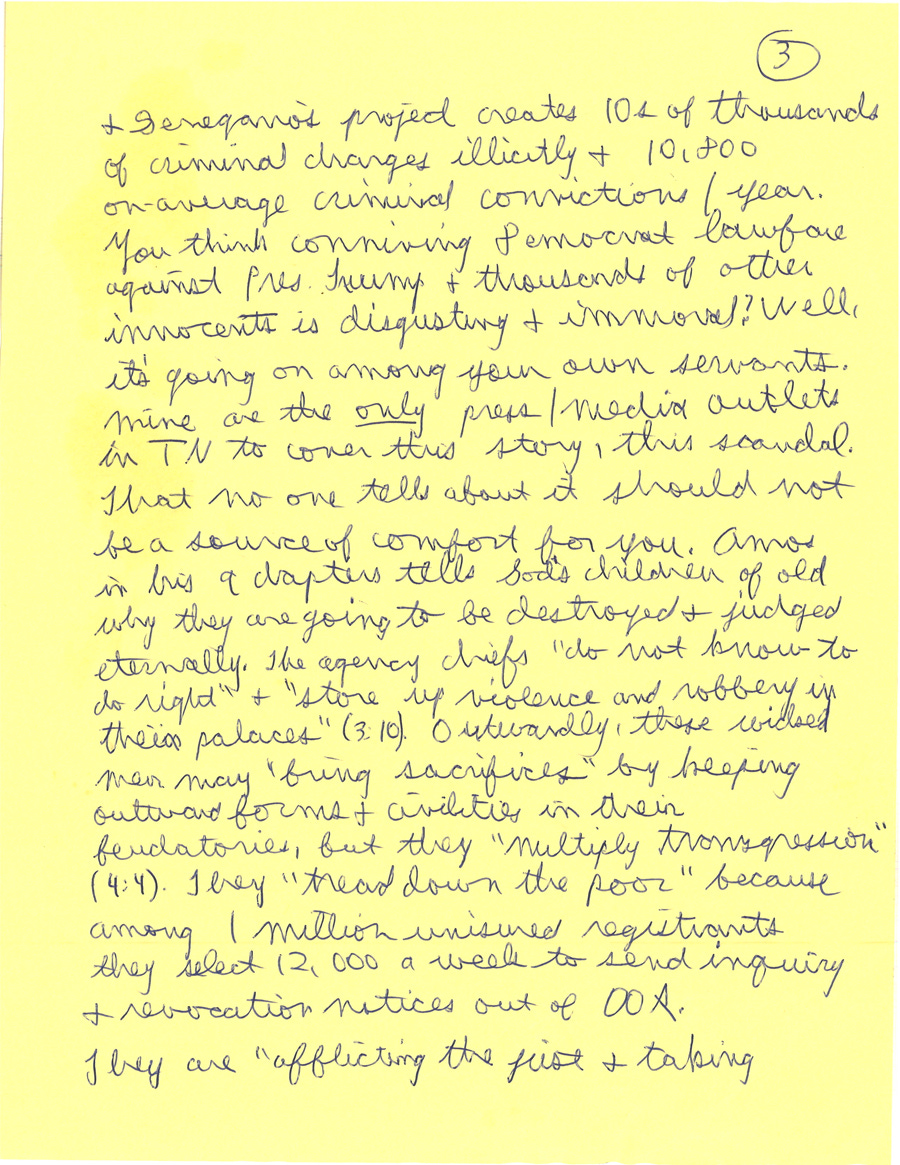 3
& Gerregano's project creates 10s of thousands
of criminal charges illicitly & 10,800
on-average criminal convictions / year.
You think conniving Democrat lawfare
against Pres. Trump & thousands of other
innocents is disgusting & immoral? Well,
it's going on among your own servants.
Mine are the only press / media outlets
in TN to cover this story, this scandal.
That no one tells about it should not
be a source of comfort for you. Amos
in his 9 chapters tells God's children of old
why they are going to be destroyed & judged
eternally. The agency chiefs "do not know to
do right" & "store up violence and robbery in
their palaces" (3:10). Outwardly, these wicked
men may "bring sacrifices" by keeping
outward forms & civilities in their
feudatories, but they "multiply transgression"
(4:4). They "tread down the poor" because
among 1 million unisured registrants
they select 12,000 a week to send inquiry
& revocation notices out of
They are "afflicting the just & taking